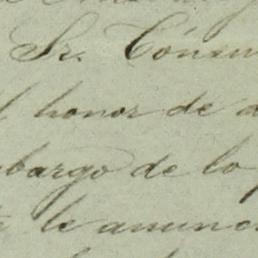 Sr. Cónsu
l honor de a
mbargo de lo
le anunc